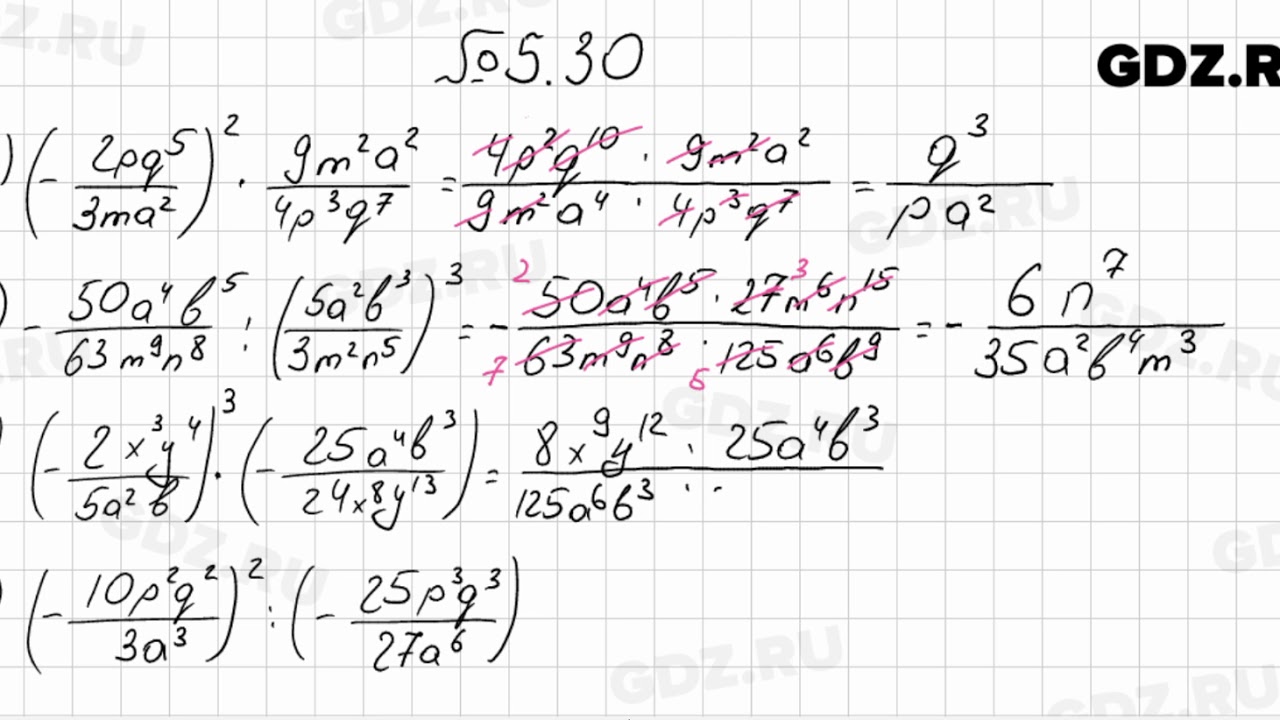 №5.30
GDZ.R
) (- 2pq⁵/3ma²)² · 9m²a²/4p³q⁷ = 4p²q¹⁰ · 9m²a²/9m²a⁴ · 4p³q⁷ = q³/pa²
) - 50a⁴b⁵/63m⁹n⁸ : (5a²b³/3m²n⁵)³ = - 2 50a⁴b⁵ · 27 3 m⁶n¹⁵/7 63m⁹n⁸ · 5 125a⁶b⁹ = - 6n⁷/35a²b⁴m³
) (- 2x³y⁴/5a²b)³ · (- 25a⁴b³/24x⁸y¹³) = 8x⁹y¹² · 25a⁴b³/125a⁶b³ ·
) (- 10p²q²/3a³)² : (- 25p³q³/27a⁶)